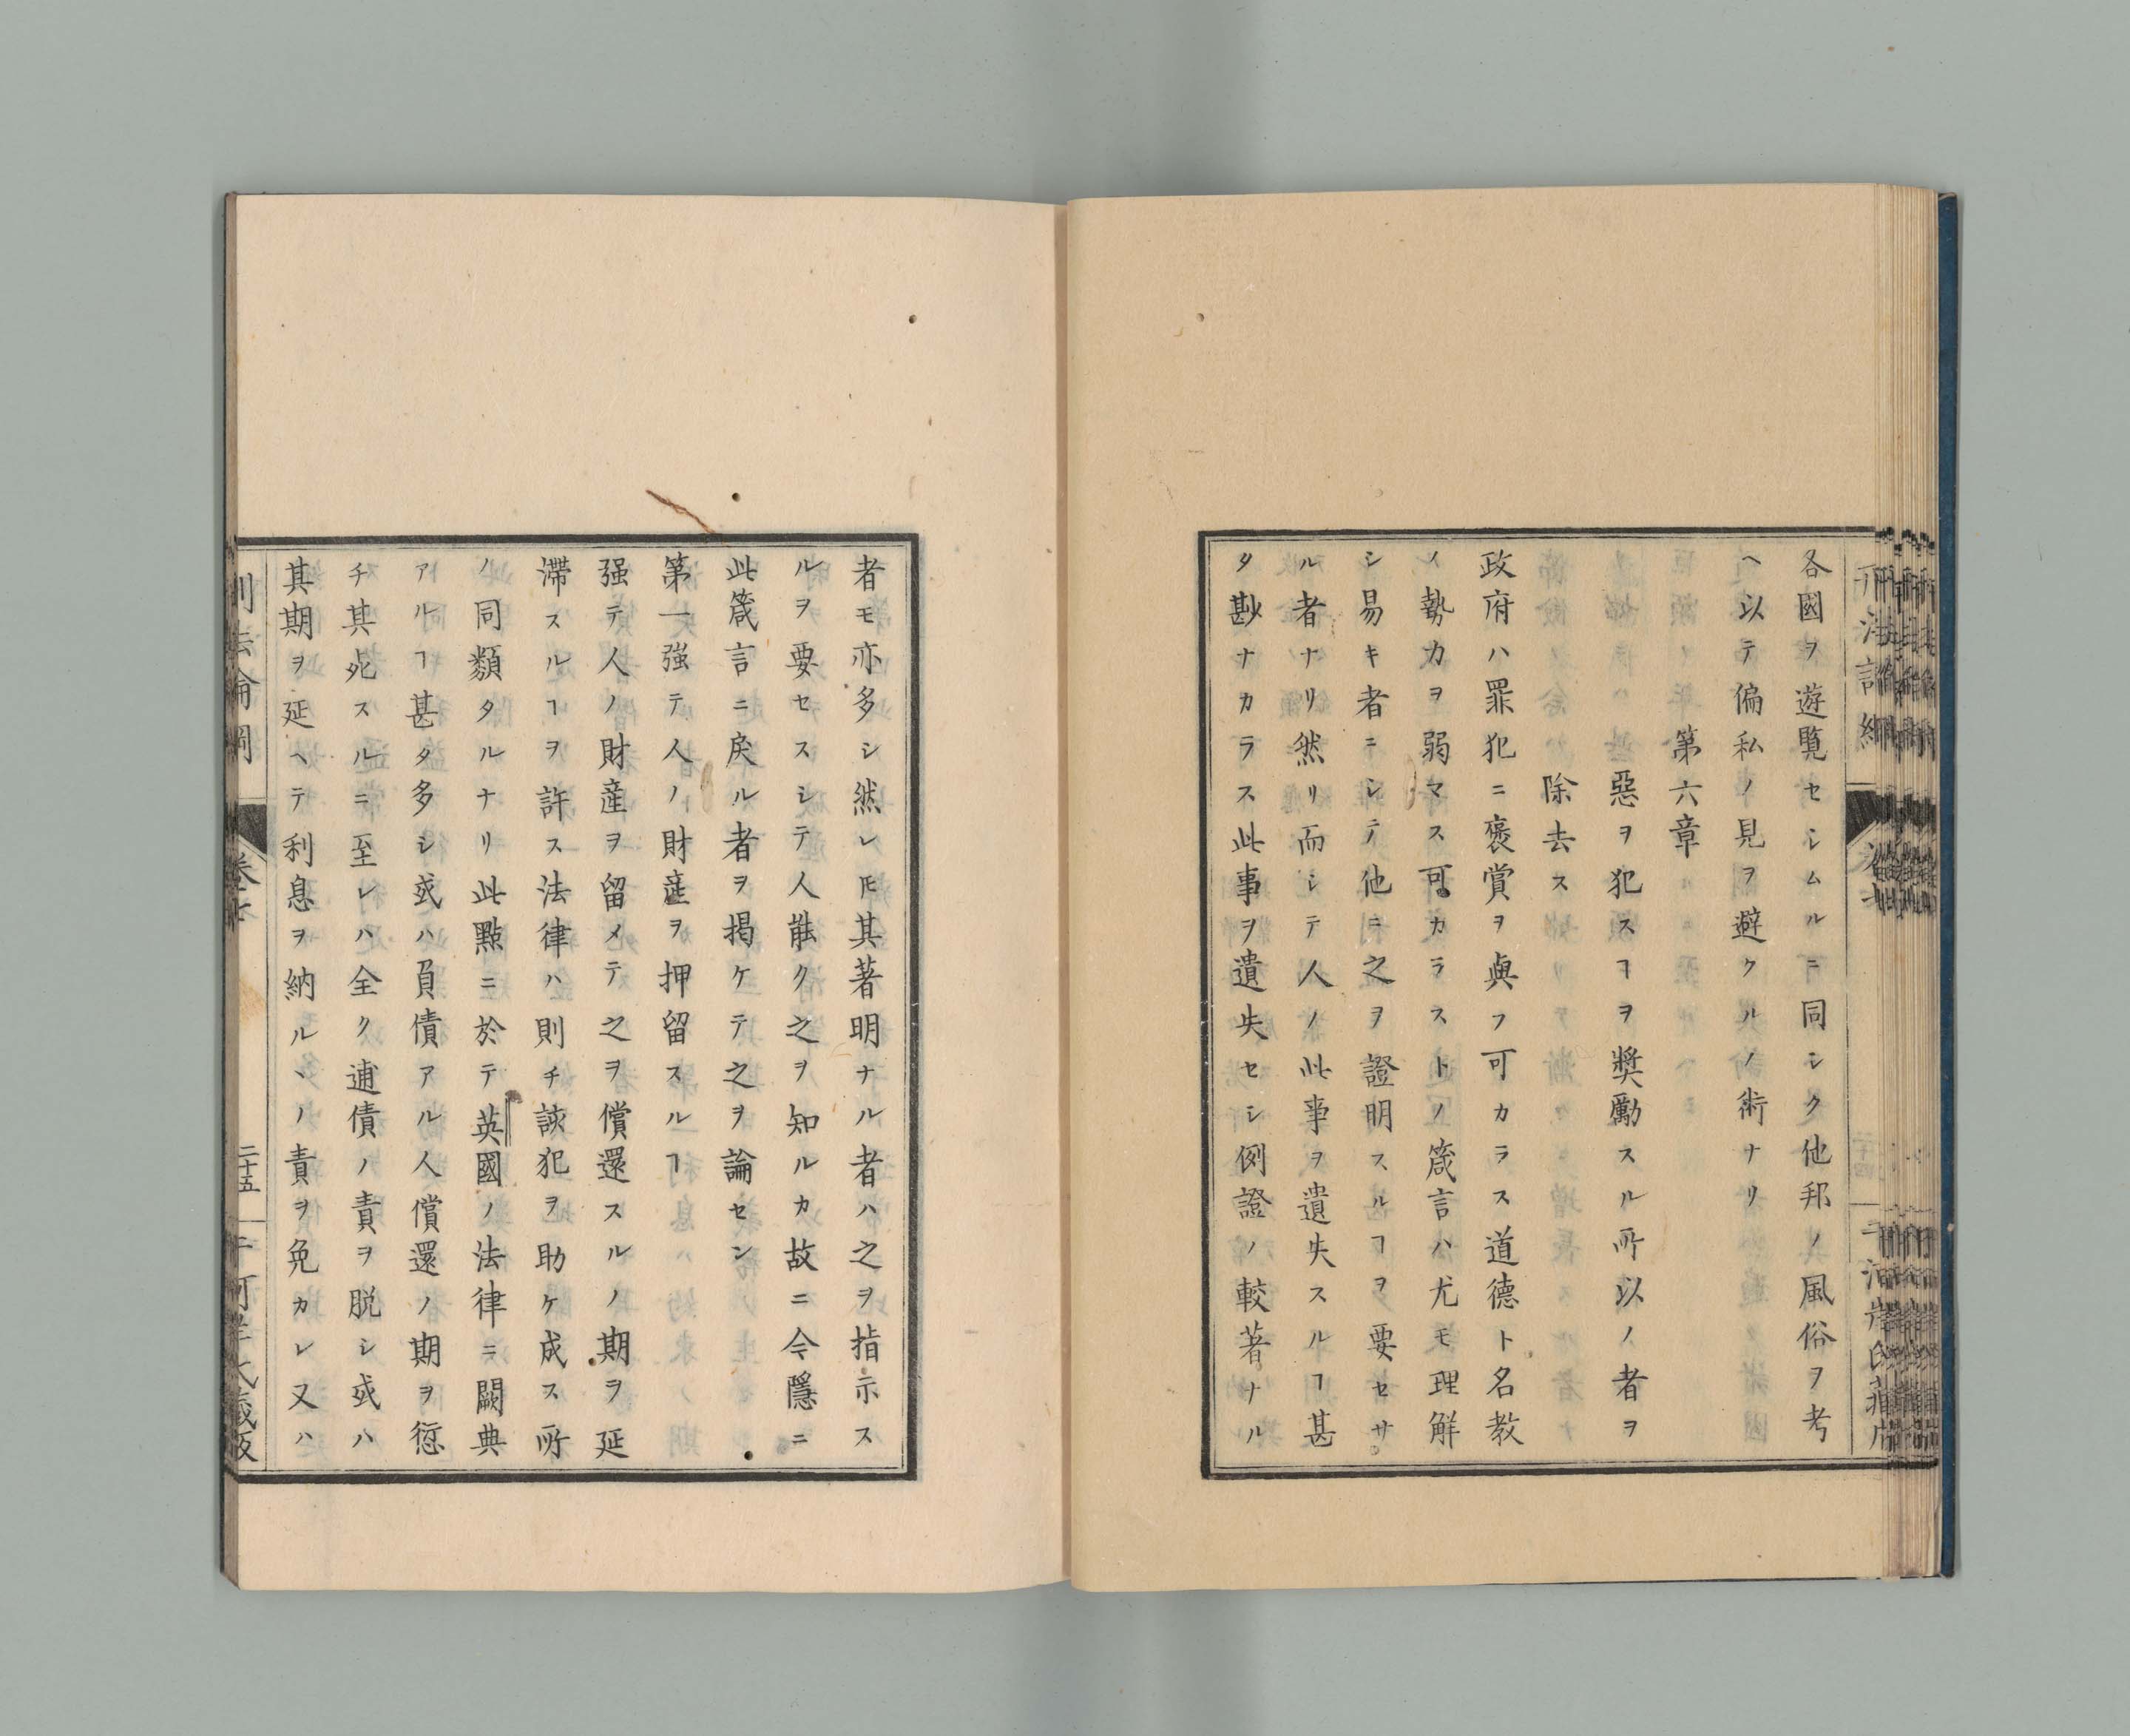 各國ヲ遊覧セシムルニ同シク他邦ノ風俗ヲ考
ヘ以テ偏私ノ見ヲ避クルノ術ナリ
第六章
惡ヲ犯スヿヲ奬勵スル所以ノ者ヲ
除去ス
政府ハ罪犯ニ褒賞ヲ與フ可カラス道德ト名教
ノ勢力ヲ弱マス可カラストノ箴言ハ尤モ理解
シ易キ者ニシテ他ニ之ヲ證明スルヿヲ要セサ
ル者ナリ然リ而シテ人ノ此事ヲ遺失スルヿ甚
タ尠ナカラス此事ヲ遺失セシ例證ノ較著ナル
者モ亦多シ然レ𪜈其著明ナル者ハ之ヲ指示ス
ルヲ要セスシテ人能ク之ヲ知ルカ故ニ今隱ニ
此箴言ニ戻ル者ヲ揭ケテ之ヲ論セン
第一強テ人ノ財產ヲ押留スルヿ
强テ人ノ財產ヲ留メテ之ヲ償還スルノ期ヲ延
滯スルヿヲ許ス法律ハ則チ該犯ヲ助ケ成ス所
ノ同類タルナリ此點ニ於テ英國ノ法律ニ闕典
アルヿ甚タ多シ或ハ負債アル人償還ノ期ヲ愆
チ其死スルニ至レハ全ク逋債ノ責ヲ脱シ或ハ
其期ヲ延ヘテ利息ヲ納ルヽノ責ヲ免カレ又ハ
卷七
二十五